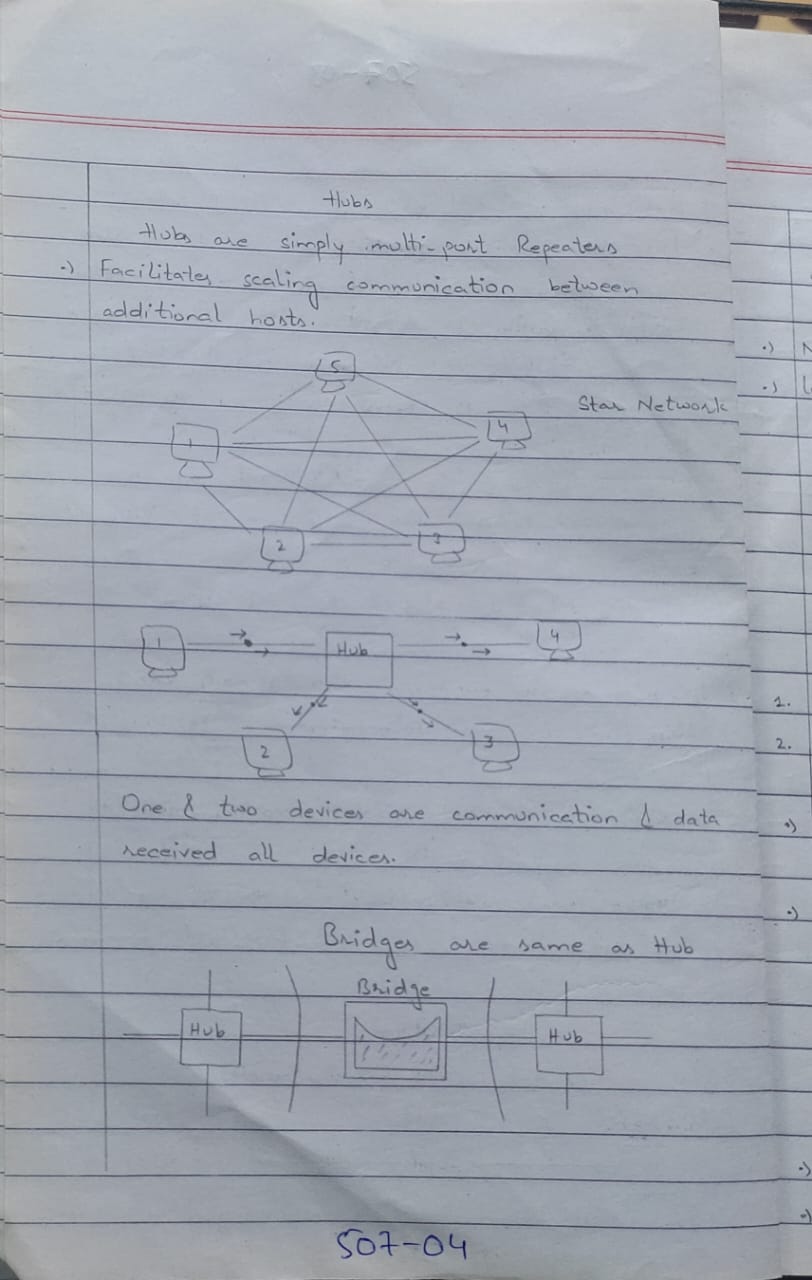 Hubs
Hubs are simply multi-port Repeaters
·) Facilitates scaling communication between
additional hosts.
5
Star Network
1
4
2
3
1
Hub
4
2
3
One & two devices are communication & data
received all devices.
Bridges are same as Hub
Bridge
Hub
Hub
507-04
·)
·)
1.
2.
·)
·)
·)
·)